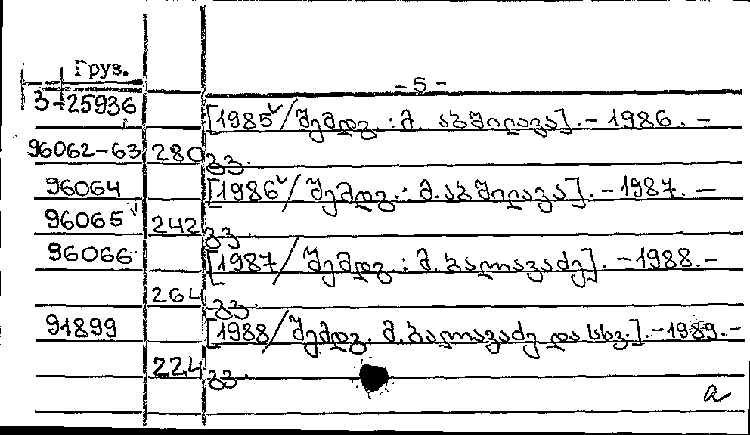 Груз.
- 5 -
3-25936
[1985/შემდგ.: მ. აბშილავა]. - 1986. -
96062-63 280 გვ.
96064 [1986/შემდგ.: მ. აბშილავა]. - 1987. -
96065 242 გვ.
96066 [1987/შემდგ.: მ. ბალიავაძე]. - 1988. -
264 გვ.
91899 [1988/შემდგ. მ. ბალიავაძე და სხვ.]. - 1989. -
224 გვ.